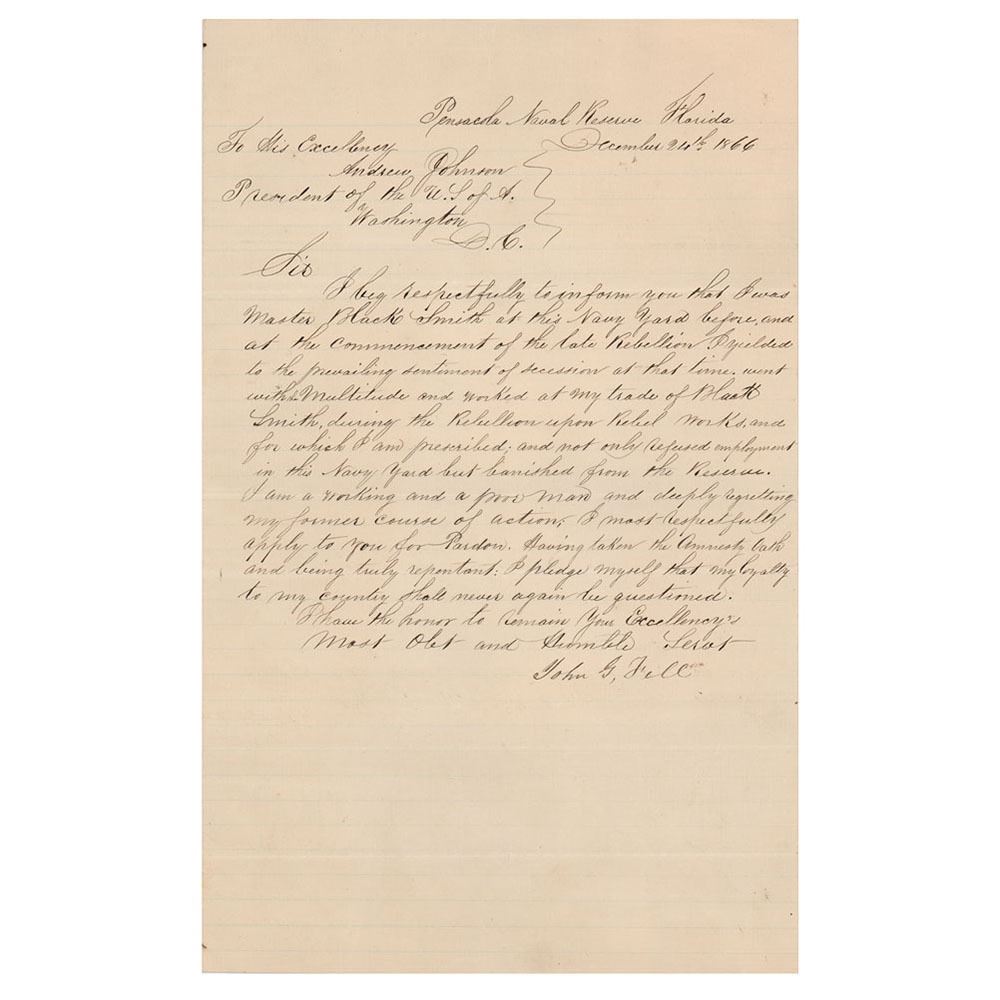 Pensacola Naval Reserve Florida
December 24th 1866
To His Excellency
Andrew Johnson
President of the U.S of A.
Washington
D.C.
Sir
I beg respectfully to inform you that I was
Master Black Smith at this Navy Yard before, and
at the commencement of the late Rebellion I yielded
to the prevailing sentiment of secession at that time. went
with Multitude and worked at my trade of Black
Smith, during the Rebellion upon Rebel works, and
for which I am prescribed; and not only refused employment
in this Navy Yard but banished from the Reserve.
I am a working and a poor man and deeply regretting
my former course of action; I most respectfully
apply to you for Pardon. Having taken the Amnesty Oath
and being truly repentant: I pledge myself that my loyalty
to my country shall never again be questioned.
I have the honor to remain Your Excellency's
Most Obt and Humble Servt
John G,